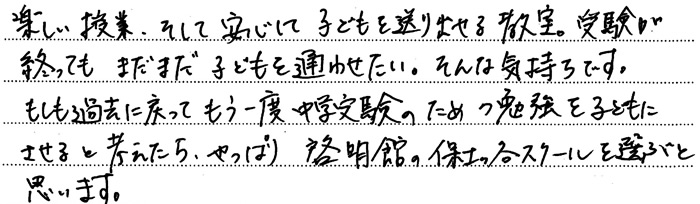 楽しい授業、そして安心して子どもを送り出せる教室。受験が
終っても まだまだ子どもを通わせたい。そんな気持ちです。
もしも過去に戻ってもう一度中学受験のための勉強を子どもに
させると考えたら、やっぱり 啓明館の保土ヶ谷スクールを選ぶと
思います。